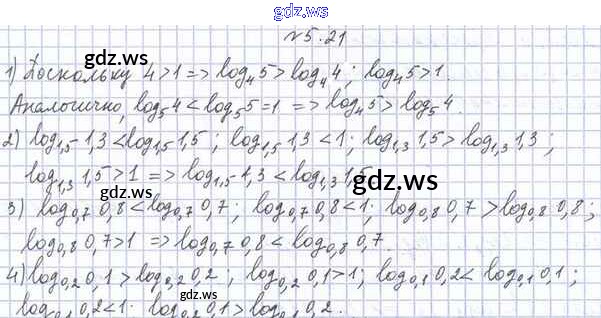 gdz.ws
№5.21
1) Поскольку 4>1 => log₄5 > log₄4; log₄5>1.
Аналогично, log₅4 < log₅5=1 => log₄5 > log₅4.
2) log₁,₅1,3 < log₁,₅1,5; log₁,₅1,3 < 1; log₁,₃1,5 > log₁,₃1,3;
log₁,₃1,5 > 1 => log₁,₅1,3 < log₁,₃1,5
gdz.ws
3) log₀,₇0,8 < log₀,₇0,7; log₀,₇0,8 < 1; log₀,₈0,7 > log₀,₈0,8;
log₀,₈0,7 > 1 => log₀,₇0,8 < log₀,₈0,7.
4) log₀,₂0,1 > log₀,₂0,2; log₀,₂0,1 > 1; log₀,₁0,2 < log₀,₁0,1;
log₀,₁0,2 < 1. log₀,₂0,1 > log₀,₁0,2.
gdz.ws
gdz.ws
gdz.ws